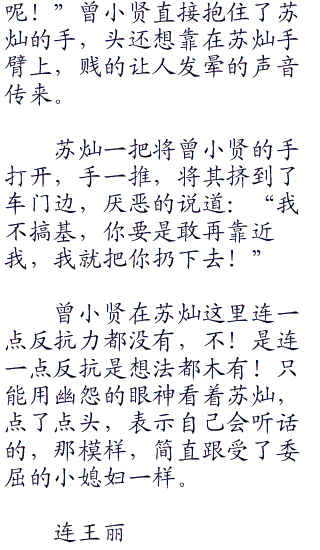 呢！”曾小贤直接抱住了苏
灿的手，头还想靠在苏灿手
臂上，贱的让人发晕的声音
传来。
苏灿一把将曾小贤的手
打开，手一推，将其挤到了
车门边，厌恶的说道：“我
不搞基，你要是敢再靠近
我，我就把你扔下去！”
曾小贤在苏灿这里连一
点反抗力都没有，不！是连
一点反抗是想法都木有！只
能用幽怨的眼神看着苏灿，
点了点头，表示自己会听话
的，那模样，简直跟受了委
屈的小媳妇一样。
连王丽